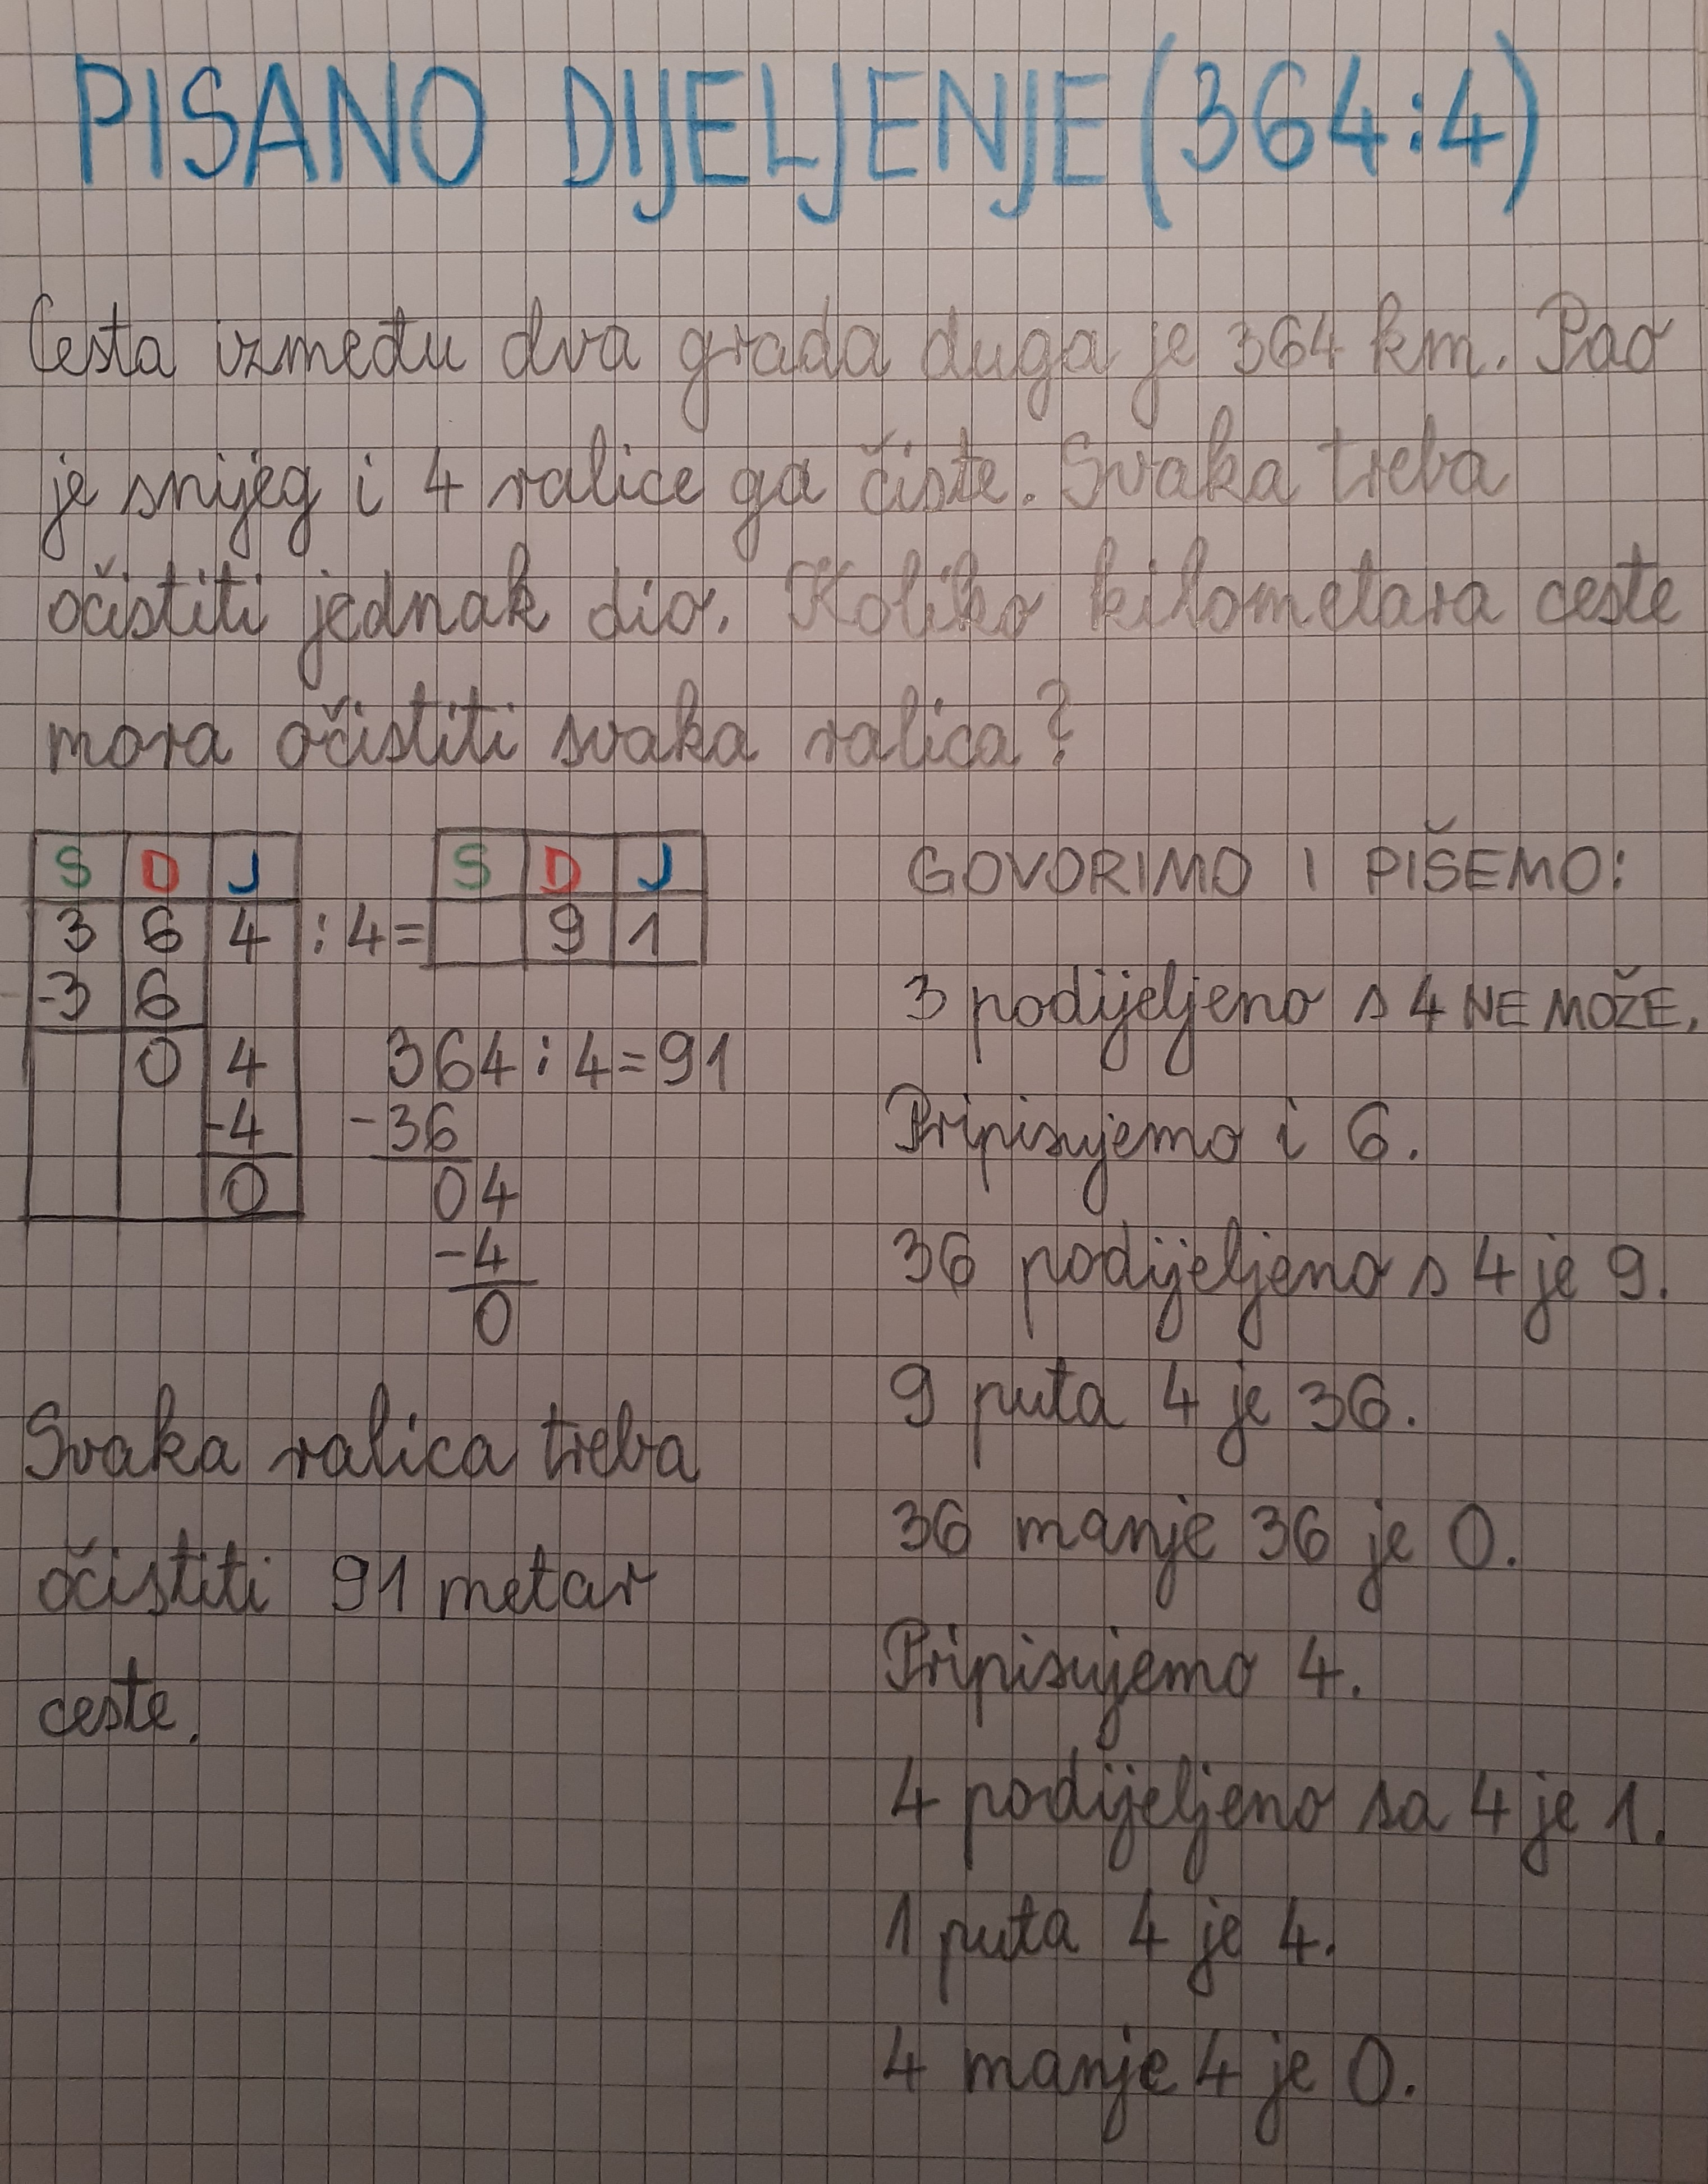 PISANO DIJELJENJE (364:4)
Cesta između dva grada duga je 364 km. Pao
je snijeg i 4 ralice ga čiste. Svaka treba
očistiti jednak dio. Koliko kilometara ceste
mora očistiti svaka ralica?
S D J
3 6 4 : 4 =
-3 6
0 4
-4
0
S D J
9 1
364 : 4 = 91
-36
04
-4
0
Svaka ralica treba
očistiti 91 metar
ceste.
GOVORIMO I PIŠEMO:
3 podijeljeno s 4 NE MOŽE.
Pripisujemo i 6.
36 podijeljeno s 4 je 9.
9 puta 4 je 36.
36 manje 36 je 0.
Pripisujemo 4.
4 podijeljeno sa 4 je 1.
1 puta 4 je 4.
4 manje 4 je 0.